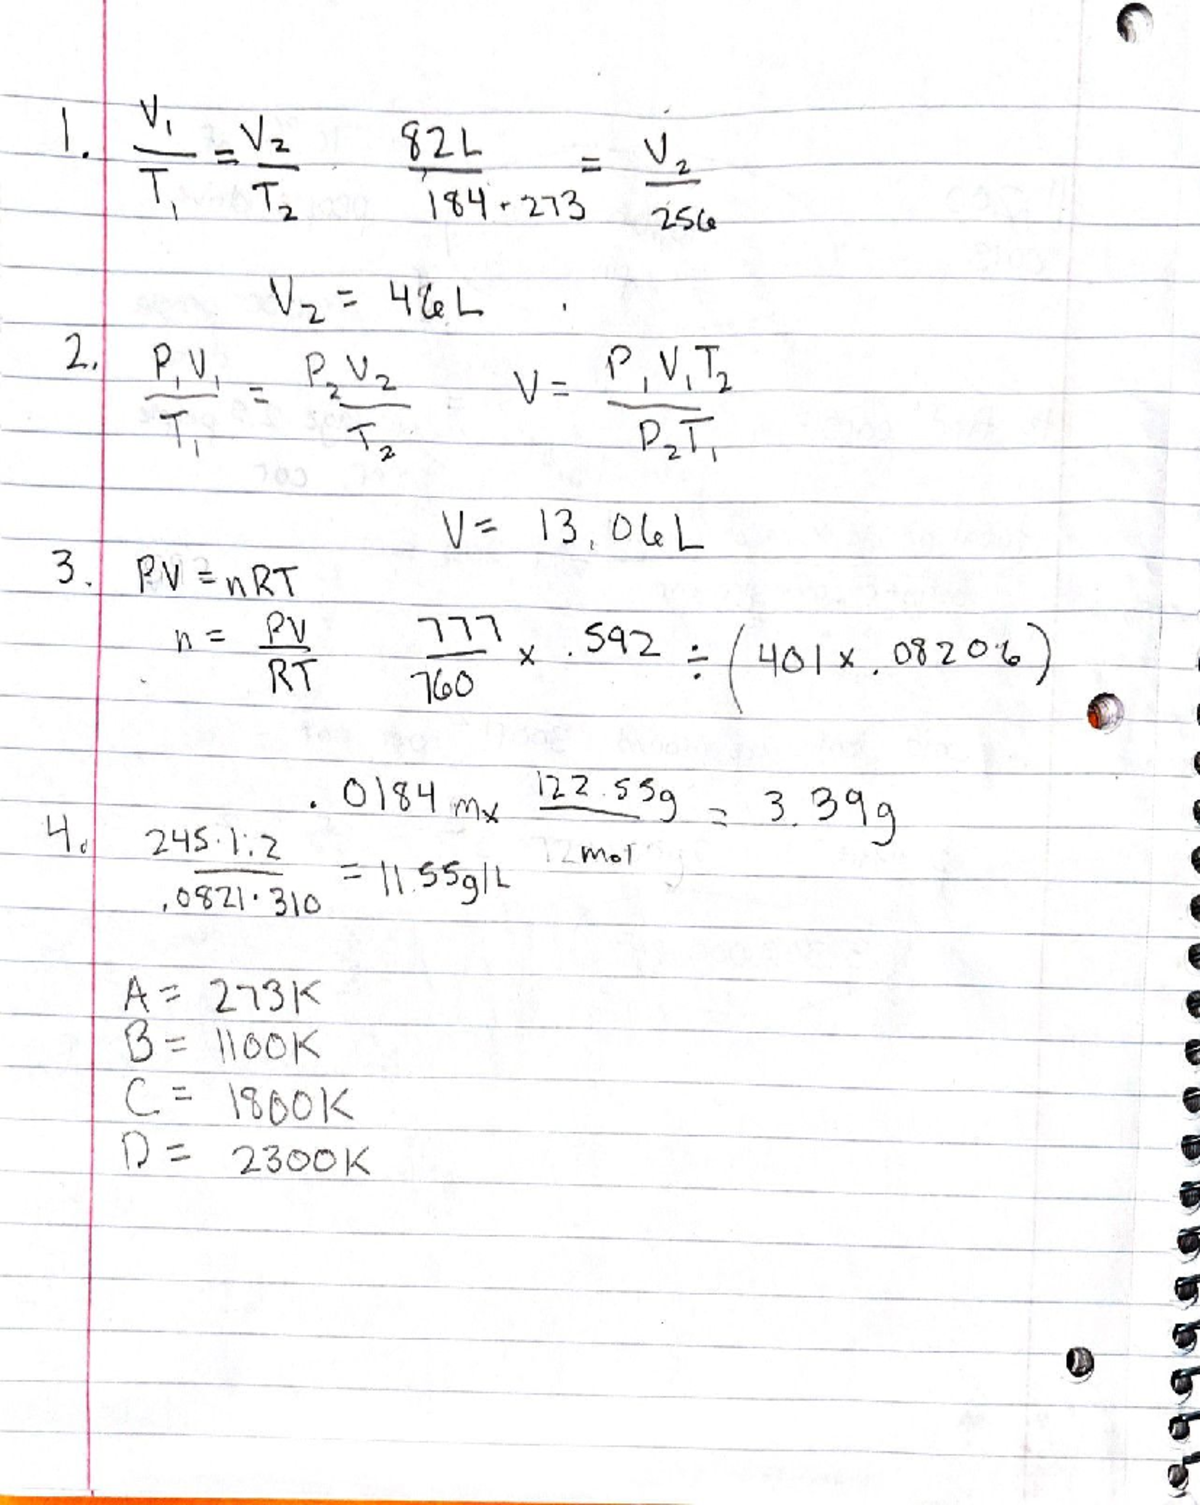 1. V₁/T₁ = V₂/T₂ 82L/184+273 = V₂/256
V₂ = 46L
2. P₁V₁/T₁ = P₂V₂/T₂ V = P₁V₁T₂/P₂T₁
V = 13.06L
3. PV = nRT
n = PV/RT 777/760 x .592 ÷ (401 x .08206)
.0184 mx 122.55g/mol = 3.39g
4. 245·1.2/.0821·310 = 11.55g/L
A = 273K
B = 1100K
C = 1800K
D = 2300K